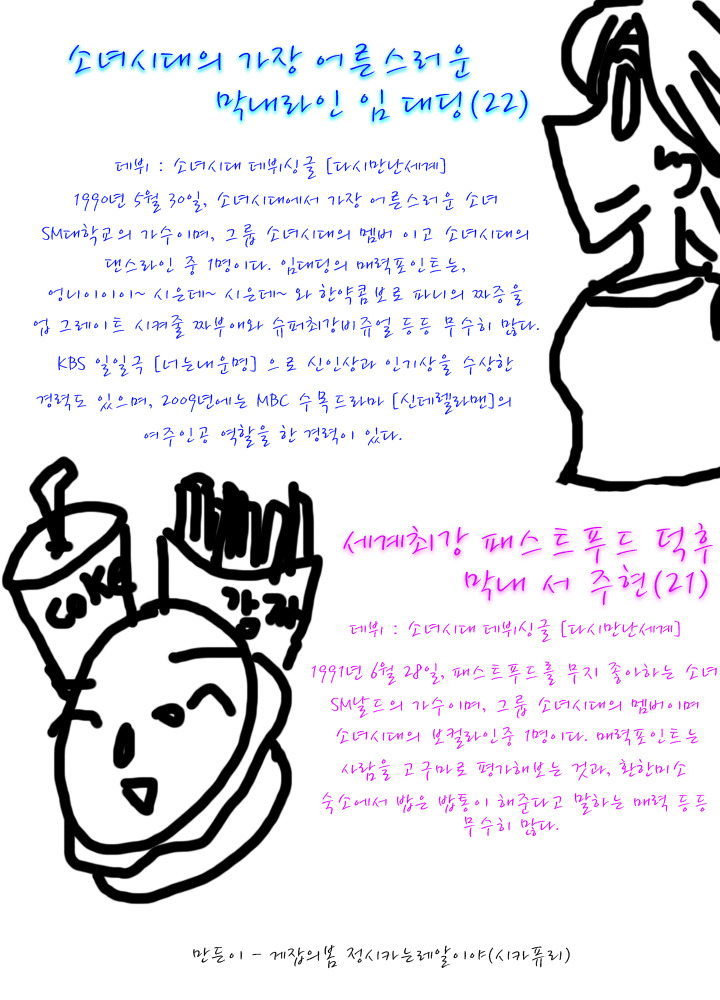 소녀시대의 가장 어른스러운
막내라인 임 대딩(22)
데뷔 : 소녀시대 데뷔싱글 [다시만난세계]
1990년 5월 30일, 소녀시대에서 가장 어른스러운 소녀
SM대학교의 가수이며, 그룹 소녀시대의 멤버 이고 소녀시대의
댄스라인 중 1명이다. 임대딩의 매력포인트는,
엉니이이이~ 시른데~ 시른데~ 와 한약콤보로 파니의 짜증을
업 그레이트 시켜줄 짜부애와 슈퍼최강비쥬얼 등등 무수히 많다.
KBS 일일극 [너는내운명] 으로 신인상과 인기상을 수상한
경력도 있으며, 2009년에는 MBC 수목드라마 [신데렐라맨]의
여주인공 역할을 한 경력이 있다.
COKE
감자
세계최강 패스트푸드 덕후
막내 서 주현(21)
데뷔 : 소녀시대 데뷔싱글 [다시만난세계]
1991년 6월 28일, 패스트푸드를 무지 좋아하는 소녀
SM날드의 가수이며, 그룹 소녀시대의 멤버이며
소녀시대의 보컬라인중 1명이다. 매력포인트는
사람을 고구마로 평가해보는 것과, 환한미소
숙소에서 밥은 밥통이 해준다고 말하는 매력 등등
무수히 많다.
만든이 - 게잡의봄 정시카는레알이야(시카퓨리)